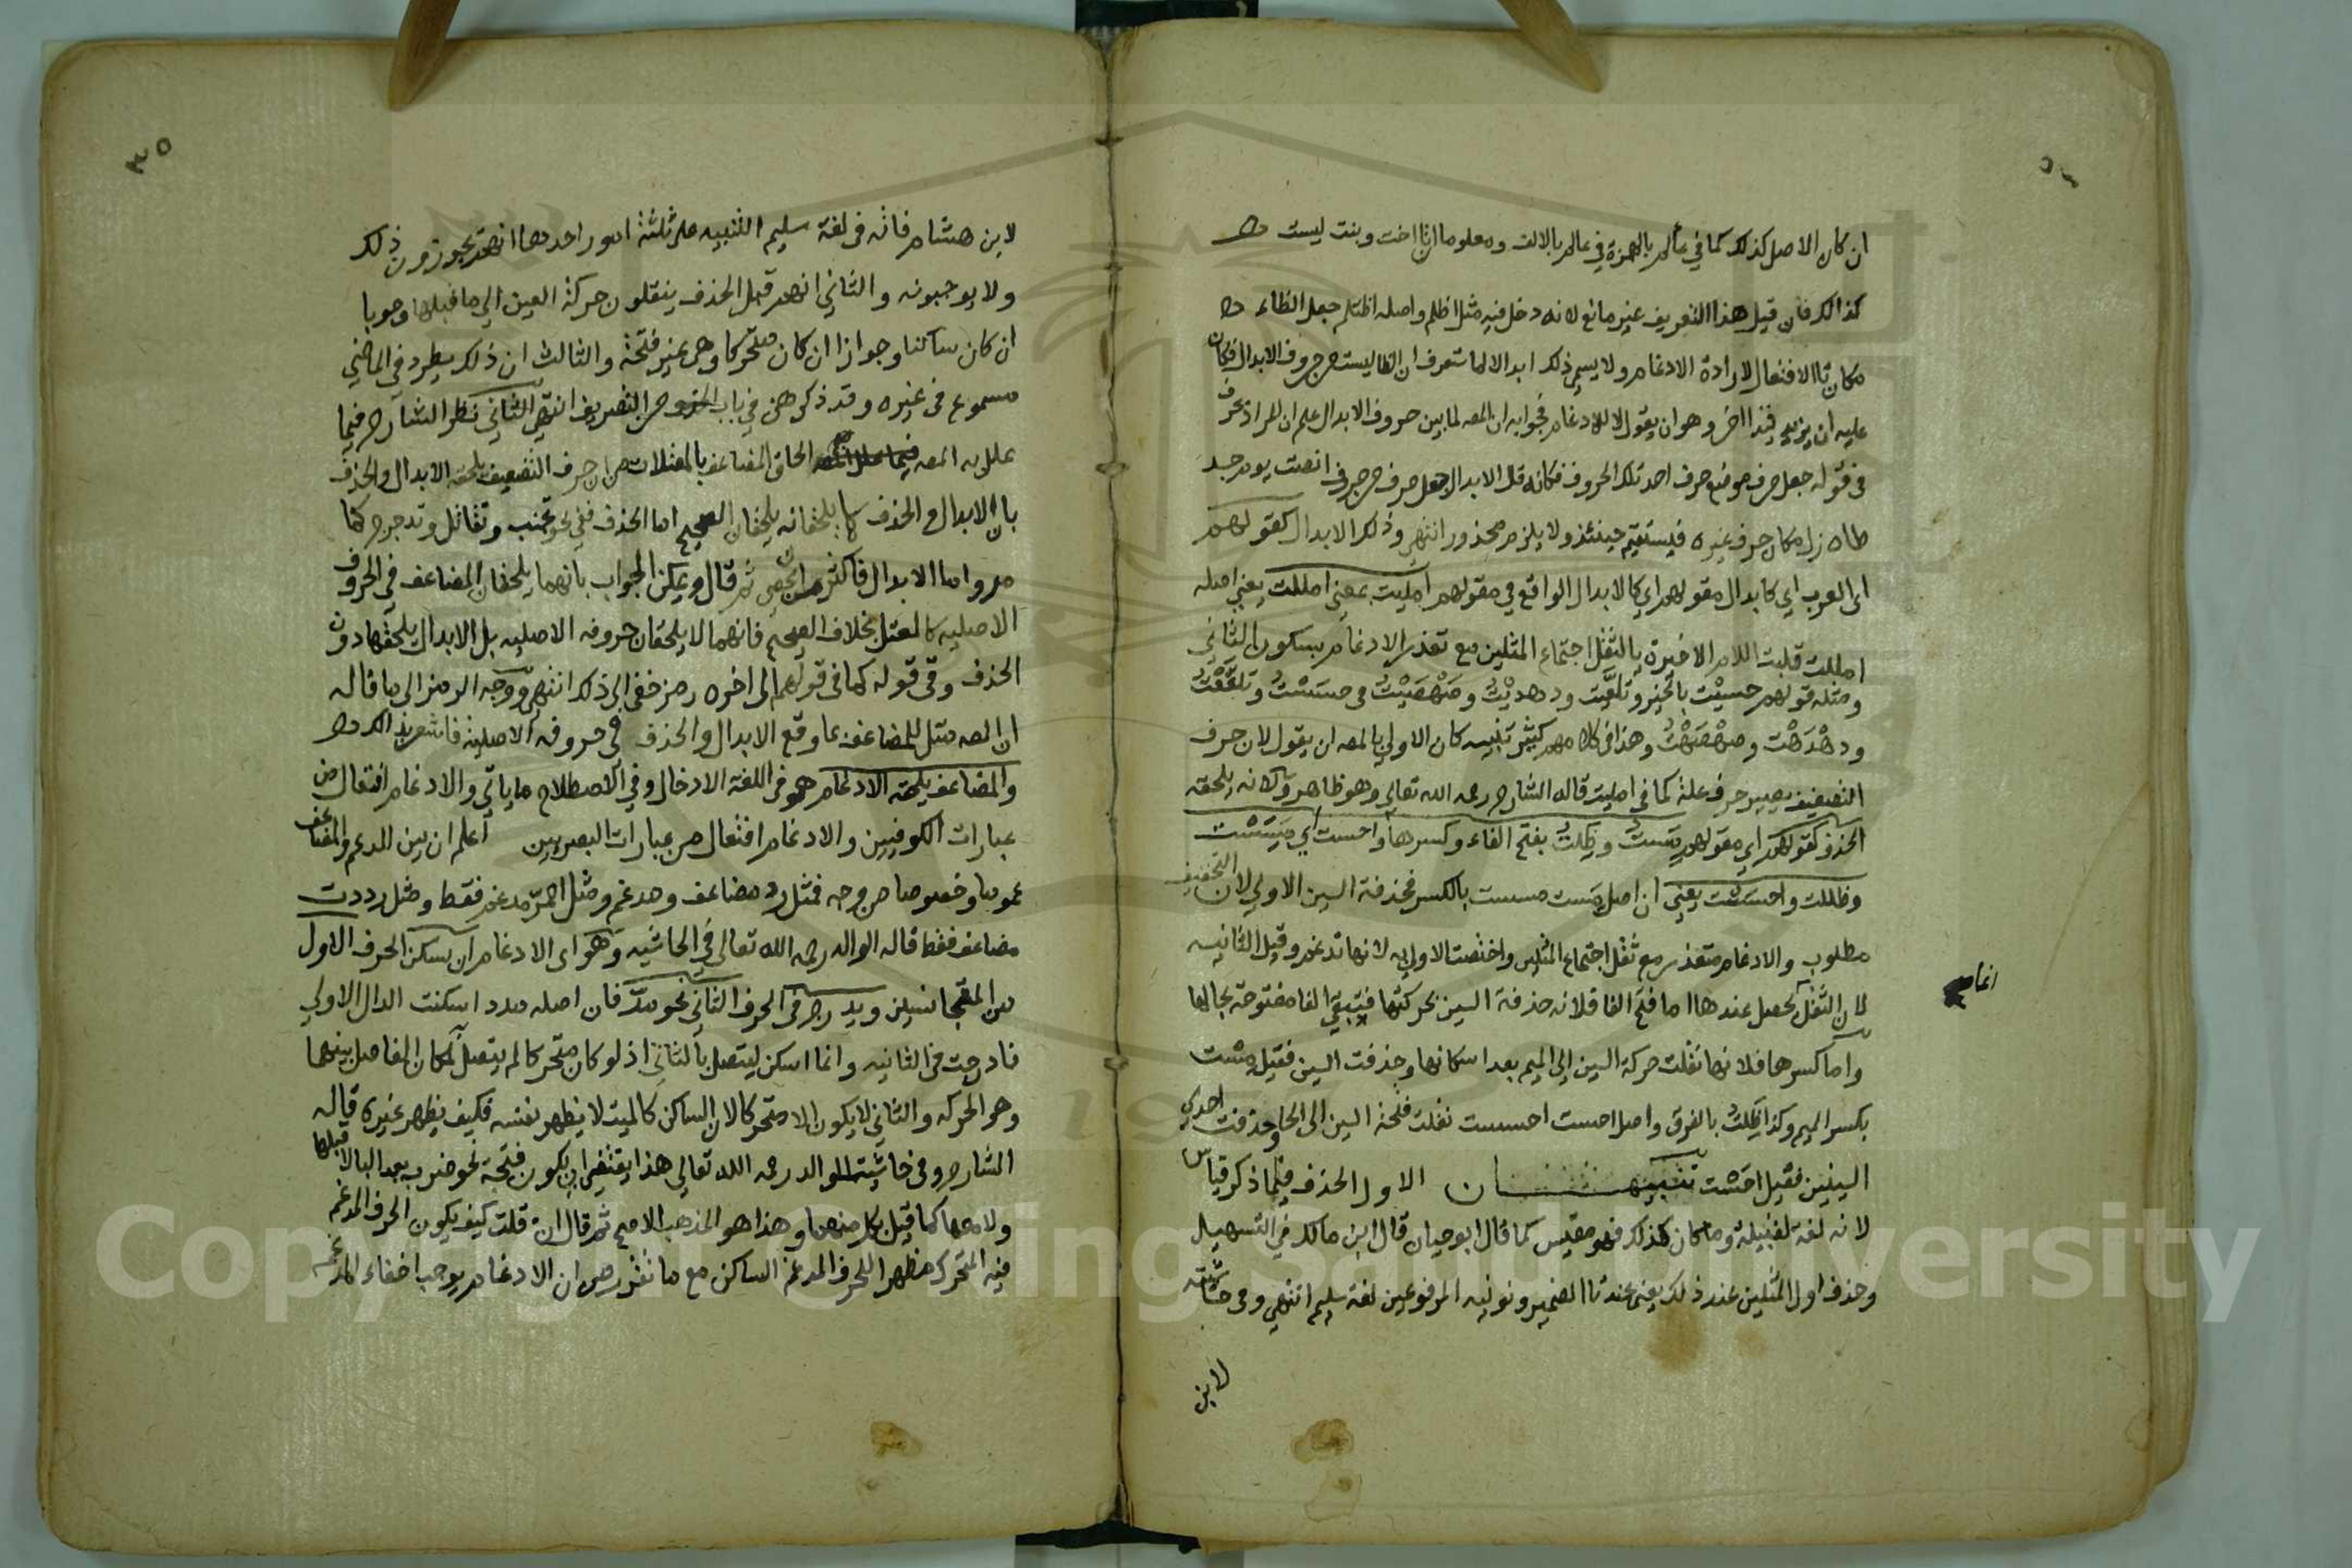 ان كان الاصل كذلك كما في عألم بالهمزة في عالم بالالف ومعلوم ان تا اخت وبنت ليست
كذالك فان قيل هذا التعريف غير مانع لانه دخل فيه مثل اظلم واصله اظتلم جعل الظاء
مكان تا الافتعال لارادة الادغام ولا يسمى ذلك ابدالا لما ستعرف ان الظا ليست من حروف الابدال فكان
عليه ان يزيد قيدا اخر وهو ان يقول لا للادغام فجوابه ان المصه لما بين حروف الابدال علم ان المراد بحرف
في قوله جعل حرف موضع حرف احد تلك الحروف فكانه قال الابدال جعل حرف من حروف انصت يوم جد
طاه زل مكان حرف غيره فيستقيم حينئذ ولا يلزم محذور انتهى وذلك الابدال كقولهم
اى العرب اي كابدال مقولهم اي كالابدال الواقع في مقولهم امليت بمعنى امللت يعني اصله
امللت قلبت اللام الاخيرة يا لثقل اجتماع المثلين مع تعذر الادغام بسكون الثاني
ومثله قولهم حسيت بالخير وتلعيت ودهديت وصهصيت في حسست وتلععت
ودهدهت وصهصهت وهذا في كلامهم كثير تنبيه كان الاولي بالمصه ان يقول لان حرف
التضعيف يصير حرف علة كما في امليت قاله الشارح رحمه الله تعالى وهو ظاهر ولانه يلحقه
الحذف كقولهم اي مقولهم مست وظلت بفتح الفاء وكسرها واحست اي مسست
وظللت واحسست يعني ان اصل مست مسست بالكسر فحذفة السين الاولي لان التخفيف
مطلوب والادغام متعذر مع ثقل اجتماع المثلين واختصت الاولى به لانها تدغم وقيل الثانيه
لان الثقل يحصل عندها اما فتح الفا فلانه حذفة السين بحركتها فتبقي الفا مفتوحة بحالها
انما
واما كسرها فلانها نقلت حركة السين الي الميم بعد اسكانها وحذفت السين فقيل مست
بكسر الميم وكذا ظلت بالفرق واصل احست احسست نقلت فتحة السين الى الحا وحذفت احدي
السينين فقيل احست تنبيهان الاول الحذف فيما ذكر قياس
لانه لغة لقبيلة وما كان كذلك فهو مقيس كما قال ابو حيان قال ابن مالك في التسهيل
وحذف اول المثلين عند ذلك يعني عند تا الضمير ونونيه المرفوعين لغة سليم انتهي وفي حاشية
لابن
٣٥
لابن هشام فانه في لغة سليم التنبيه على ثلثة امور احدها انهم يجوزون ذلك
ولا يوجبونه والثاني انهم قبل الحذف ينقلون حركة العين الي ما قبلها وجوبا
ان كان ساكنا وجوازا ان كان متحركا وهي غير فتحة والثالث ان ذلك يطرد في الماضي
مسموع في غيره وقد ذكر هن في باب من التصريف انتهى الثاني نظر الشارح فيما
علل به المصه الحاق المضاعف بالمعتلات من ان حرف التضعيف يلحقه الابدال والحذف
بان الابدال والحذف كما يلحقانه يلحقان الصحيح اما الحذف ففي نحو تجنب وتقاتل وتدحرج كما
مر واما الابدال فاكثر من ان يحصى ثم قال ويمكن الجواب بانهما يلحقان المضاعف في الحروف
الاصليه كالمعتل بخلاف الصحيح فانهما لا يلحقان حروفه الاصليه بل الابدال يلحقها دون
الحذف وفي قوله كما في قولهم الى اخره رمز خفي الى ذلك انتهى ووجه الرمز الى ما قاله
ان المصه مثل للمضاعف بما وقع الابدال والحذف في حروفه الاصلية فاشعر بذالك
والمضاعف يلحقه الادغام هو في اللغة الادخال وفي الاصطلاح ما ياتي والادغام افتعال من
عبارات الكوفيين والادغام افتعال من عبارات البصريين اعلم ان بين المدغم والمضاعف
عموما وخصوصا من وجه فمثل رد مضاعف ومدغم ومثل امّر مدغم فقط ومثل رددت
مضاعف فقط قاله الوالد رحمه الله تعالى في الحاشيه وهو اى الادغام ان يسكن الحرف الاول
من المتجانسين ويدرج في الحرف الثاني نحو مدّ فان اصله مدد اسكنت الدال الاولى
فادرجت في الثانيه وانما اسكن ليتصل بالثاني اذ لو كان متحركا لم يتصل لمكان الفاصل بينهما
وهو الحركه والثاني لا يكون الا متحركا لان الساكن كالميت لا يظهر نفسه فكيف يظهر غيره قاله
الشارح وفي حاشية الوالد رحمه الله تعالى هذا يقتضي ان يكون فتحة نحو ضرب بعد البا لا قبلها
ولا معها كما قيل بكل منهما وهذا هو المذهب الاصح ثم قال ان قلت كيف يكون الحرف المدغم
فيه المتحرك مظهرا للحرف المدغم الساكن مع ما تقرر من ان الادغام يوجب اخفاء المدغم
Copyright © King Saud University